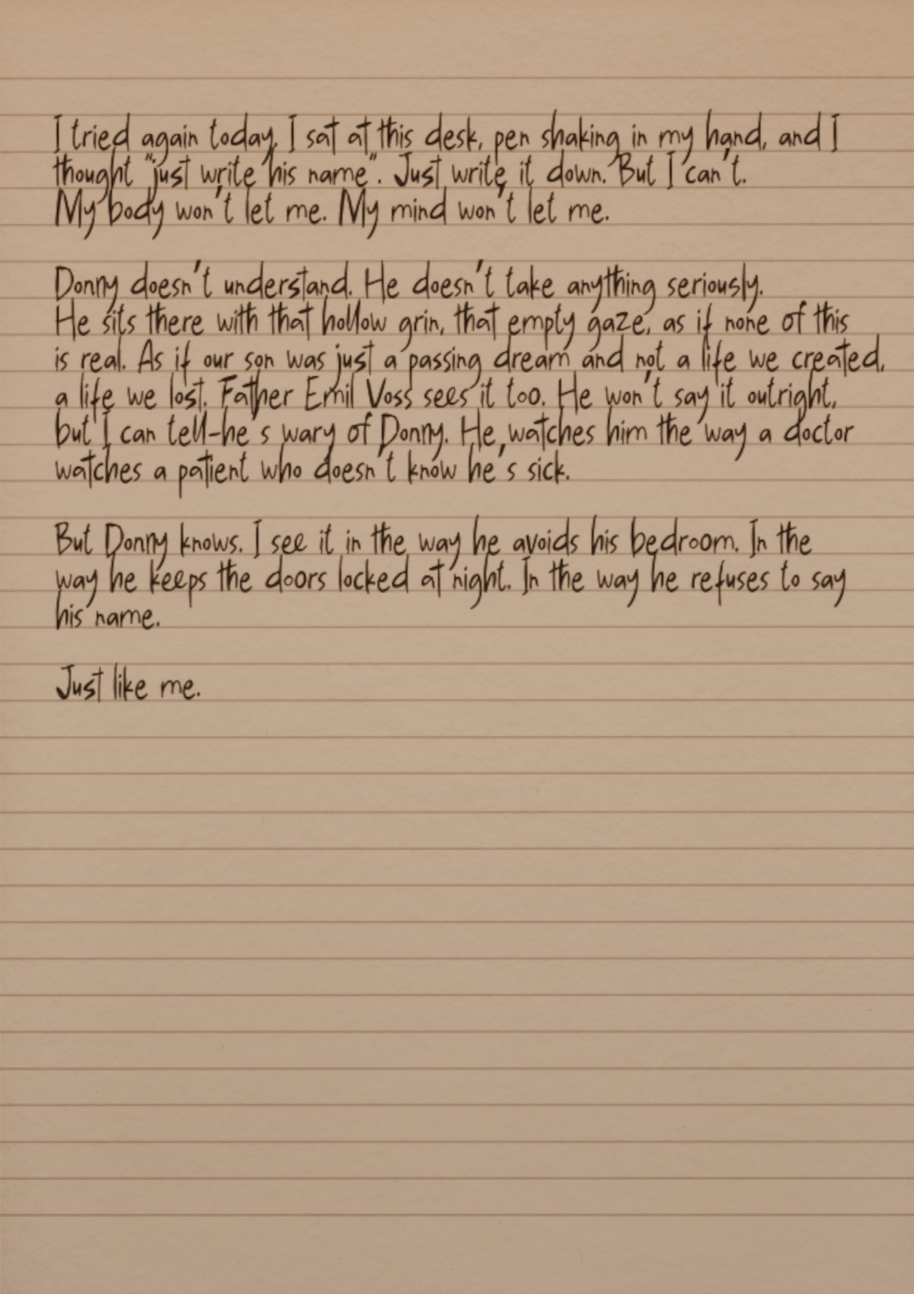 I tried again today. I sat at this desk, pen shaking in my hand, and I
thought "just write his name". Just write it down. But I can't.
My body won't let me. My mind won't let me.
Donny doesn't understand. He doesn't take anything seriously.
He sits there with that hollow grin, that empty gaze, as if none of this
is real. As if our son was just a passing dream and not a life we created,
a life we lost. Father Emil Voss sees it too. He won't say it outright,
but I can tell-he's wary of Donny. He watches him the way a doctor
watches a patient who doesn't know he's sick.
But Donny knows. I see it in the way he avoids his bedroom. In the
way he keeps the doors locked at night. In the way he refuses to say
his name.
Just like me.